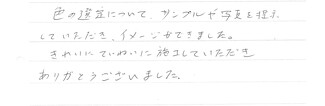 色の選定について、サンプルや写真を提示
していただき、イメージができました。
きれいにていねいに施工していただき
ありがとうございました。